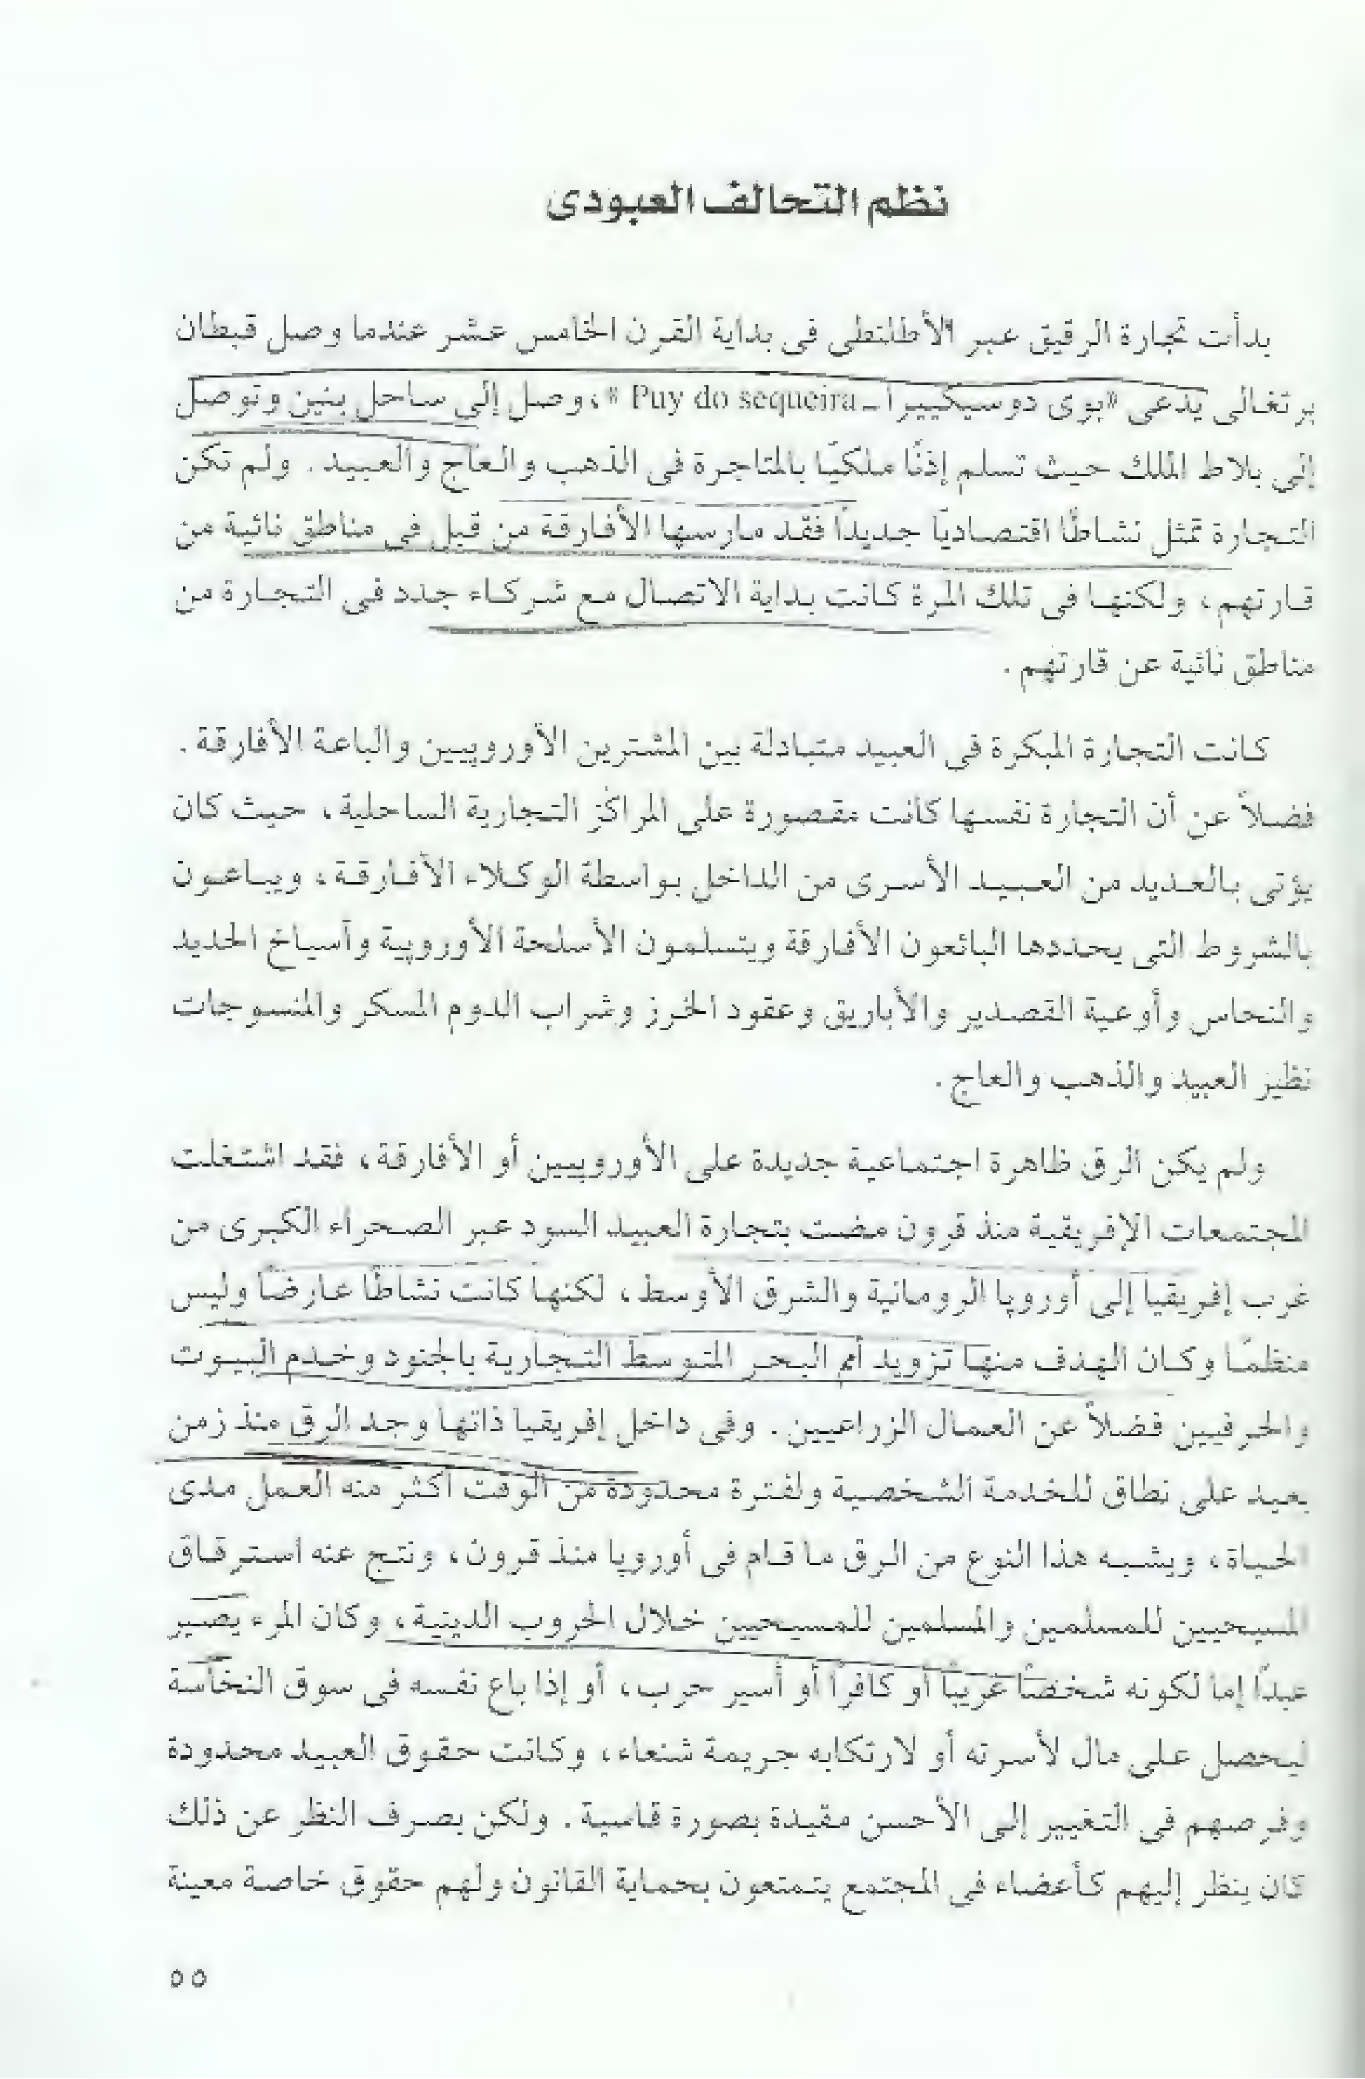 نظم التحالف العبودى
بدأت تجارة الرقيق عبر الأطلنطى فى بداية القرن الخامس عشر عندما وصل قبطان
برتغالى يدعى «بوى دوسيكييرا ـ Puy do sequeira »، وصل إلى ساحل بنين وتوصل
إلى بلاط الملك حيث تسلم إذنًا ملكيًا بالمتاجرة فى الذهب والعاج والعبيد . ولم تكن
التجارة تمثل نشاطًا اقتصاديًا جديدًا فقد مارسها الأفارقة من قبل فى مناطق نائية من
قارتهم، ولكنها فى تلك المرة كانت بداية الاتصال مع شركاء جدد فى التجارة من
مناطق نائية عن قارتهم .
كانت التجارة المبكرة فى العبيد متبادلة بين المشترين الأوروبيين والباعة الأفارقة .
فضلاً عن أن التجارة نفسها كانت مقصورة على المراكز التجارية الساحلية، حيث كان
يؤتى بالعديد من العبيد الأسرى من الداخل بواسطة الوكلاء الأفارقة، ويباعون
بالشروط التى يحددها البائعون الأفارقة ويتسلمون الأسلحة الأوروبية وأسياخ الحديد
والنحاس وأوعية القصدير والأباريق وعقود الخرز وشراب الدوم المسكر والمنسوجات
نظير العبيد والذهب والعاج .
ولم يكن الرق ظاهرة اجتماعية جديدة على الأوروبيين أو الأفارقة، فقد اشتغلت
المجتمعات الإفريقية منذ قرون مضت بتجارة العبيد السود عبر الصحراء الكبرى من
غرب إفريقيا إلى أوروبا الرومانية والشرق الأوسط، لكنها كانت نشاطًا عارضًا وليس
منظمًا وكان الهدف منها تزويد أمم البحر المتوسط التجارية بالجنود وخدم البيوت
والحرفيين فضلاً عن العمال الزراعيين . وفى داخل إفريقيا ذاتها وجد الرق منذ زمن
بعيد على نطاق للخدمة الشخصية ولفترة محدودة من الوقت أكثر منه العمل مدى
الحياة، ويشبه هذا النوع من الرق ما قام فى أوروبا منذ قرون، ونتج عنه استرقاق
المسيحيين للمسلمين والمسلمين للمسيحيين خلال الحروب الدينية، وكان المرء يصير
عبدًا إما لكونه شخصًا غريبًا أو كافرًا أو أسير حرب، أو إذا باع نفسه فى سوق النخاسة
ليحصل على مال لأسرته أو لارتكابه جريمة شنعاء، وكانت حقوق العبيد محدودة
وفرصهم فى التغيير إلى الأحسن مقيدة بصورة قاسية . ولكن بصرف النظر عن ذلك
كان ينظر إليهم كأعضاء فى المجتمع يتمتعون بحماية القانون ولهم حقوق خاصة معينة
٥٥